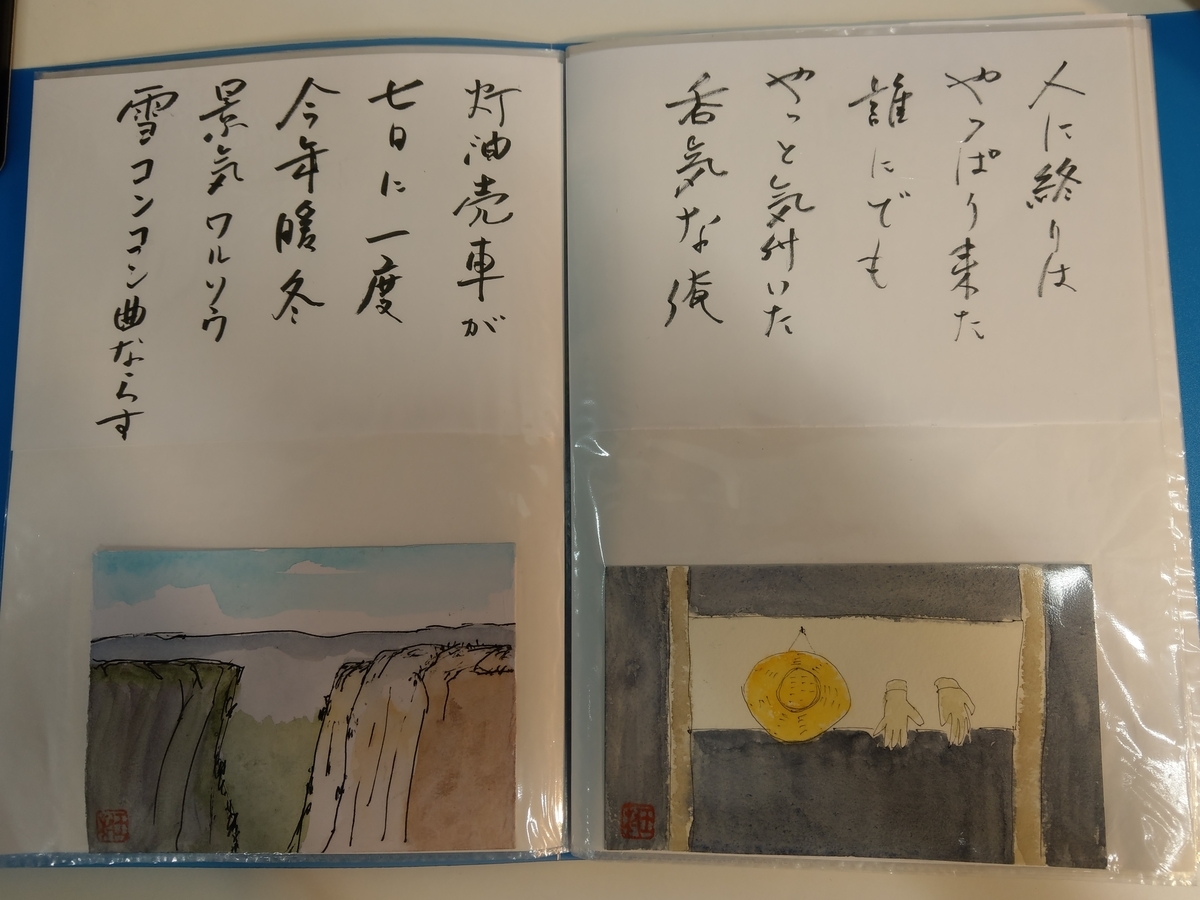 人に終りは
やっぱり来た
誰にでも
やっと気付いた
呑気な俺
灯油売車が
七日に一度
今年暖冬
景気ワルソウ
雪コンコン曲ならす